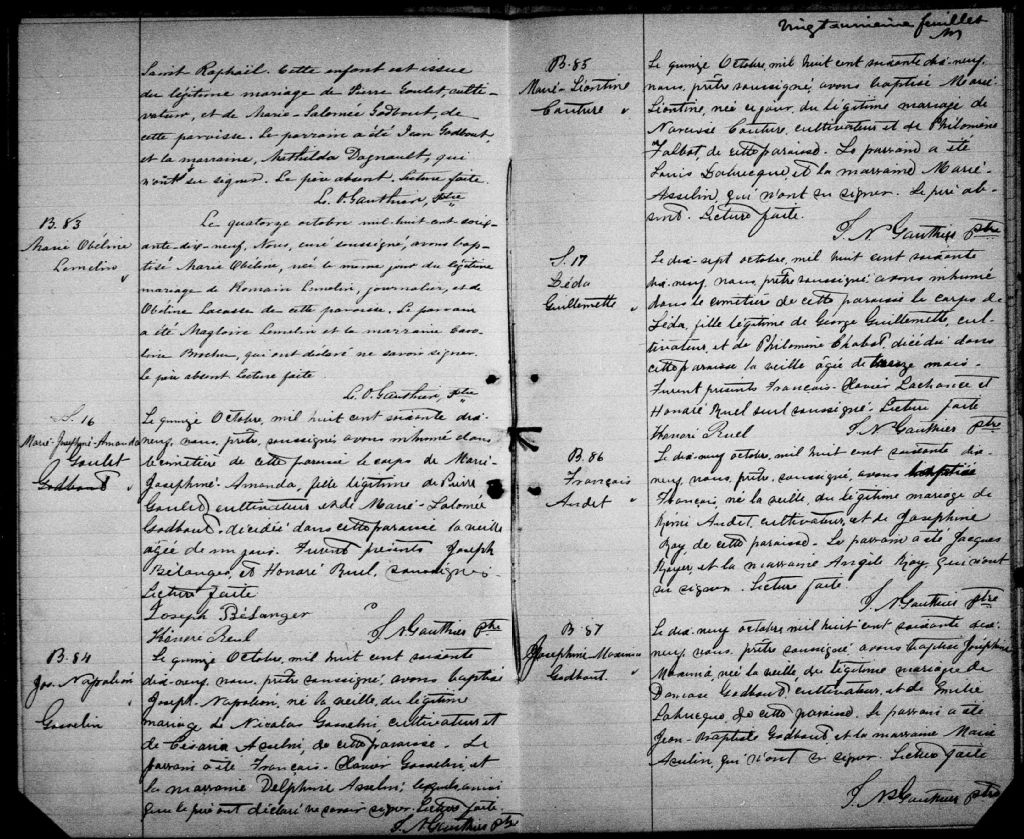 Saint Raphaël. Cette enfant est issue
du légitime mariage de Pierre Goulet, culti-
vateur, et de Marie-Salomée Godbout, de
cette paroisse. Le parrain a été Jean Godbout,
et la marraine, Mathilda Dagnault, qui
n'ont su signer. Le père absent. Lecture faite.
L. O. Gauthier, ptre
B. 83
Marie Obéline
Lemelin
Le quatorze octobre mil-huit-cent-soix-
ante-dix-neuf, Nous, curé soussigné, avons bap-
tisé Marie Obéline, née le même jour du légitime
mariage de Romain Lemelin, journalier, et de
Obéline Lacasse de cette paroisse. Le parrain
a été Magloire Lemelin et la marraine Caro-
line Brochu, qui ont déclaré ne savoir signer.
Le père absent Lecture faite
L. O. Gauthier, ptre
S. 16
Marie-Josephine-Amanda
Goulet
Godbout
Le quinze Octobre, mil huit cent soixante dix-
neuf, nous, prêtre, soussigné avons inhumé dans
le cimetière de cette paroisse le corps de Marie-
Josephine-Amanda, fille légitime de Pierre
Goulet, cultivateur et de Marie-Salomée
Godbout, décédée dans cette paroisse la veille
âgée de un jour. Furent présents Joseph
Bélanger, et Honoré Ruel, soussignés.
Lecture faite
Joseph Bélanger
Honoré Ruel J. N. Gauthier ptre
B. 84
Jos. Napoléon
Gosselin
Le quinze Octobre, mil huit cent soixante
dix-neuf, nous, prêtre soussigné, avons baptisé
Joseph Napoléon, né la veille, du légitime
mariage de Nicolas Gosselin, cultivateur et
de Césarie Asselin, de cette paroisse. Le
parrain a été François-Xavier Gosselin, et
la marraine Delphine Asselin; lesquels, ainsi
que le père ont déclaré ne savoir signer. Lecture faite.
J. N. Gauthier ptre
Vingt-unième feuillet
B. 85
Marie-Léontine
Couture
Le quinze Octobre, mil huit cent soixante dix-neuf,
nous, prêtre soussigné, avons baptisé Marie-
Léontine, née ce jour, du légitime mariage de
Narcisse Couture, cultivateur et de Philomène
Talbot, de cette paroisse. Le parrain a été
Louis Labrecque, et la marraine Marie-
Asselin, qui n'ont su signer. Le père ab-
sent. Lecture faite.
J. N. Gauthier ptre
S. 17
Léda
Guillemette
Le dix-sept octobre, mil huit cent soixante
dix-neuf, nous, prêtre soussigné avons inhumé
dans le cimetière de cette paroisse le corps de
Léda, fille légitime de George Guillemette, cul-
tivateur, et de Philomène Chabot, décédée dans
cette paroisse la veille âgée de treize mois.
Furent présents François-Xavier Lachance et
Honoré Ruel seul soussigné. Lecture faite
Honoré Ruel J. N. Gauthier ptre
B. 86
François
Audet
Le dix-neuf octobre, mil huit cent soixante dix-
neuf, nous, prêtre, soussigné, avons baptisé
François, né la veille, du légitime mariage de
Rémi Audet, cultivateur, et de Josephine
Roy de cette paroisse. Le parrain a été Jacques
Royer, et la marraine Angèle Roy, qui n'ont
su signer. Lecture faite.
J. N. Gauthier ptre
B. 87
Josephine
Godbout
Le dix-neuf octobre, mil huit cent soixante dix-
neuf, nous, prêtre soussigné avons baptisé Josephine
née la veille du légitime mariage de
Damase Godbout, cultivateur, et de Emilie
Labrecque, de cette paroisse. Le parrain a été
Jean-Baptiste Godbout, et la marraine Marie
Asselin, qui n'ont su signer. Lecture faite
J. N. Gauthier ptre